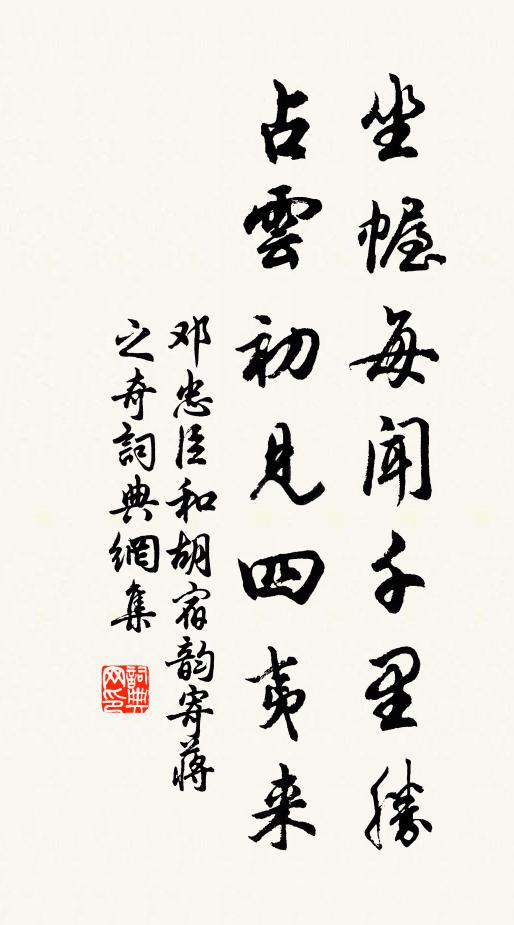 坐幄每闻千里勝
占雲初見四夷来
邓忠臣和胡宿韵寄蒋
之奇詞典網集
詞典
网印